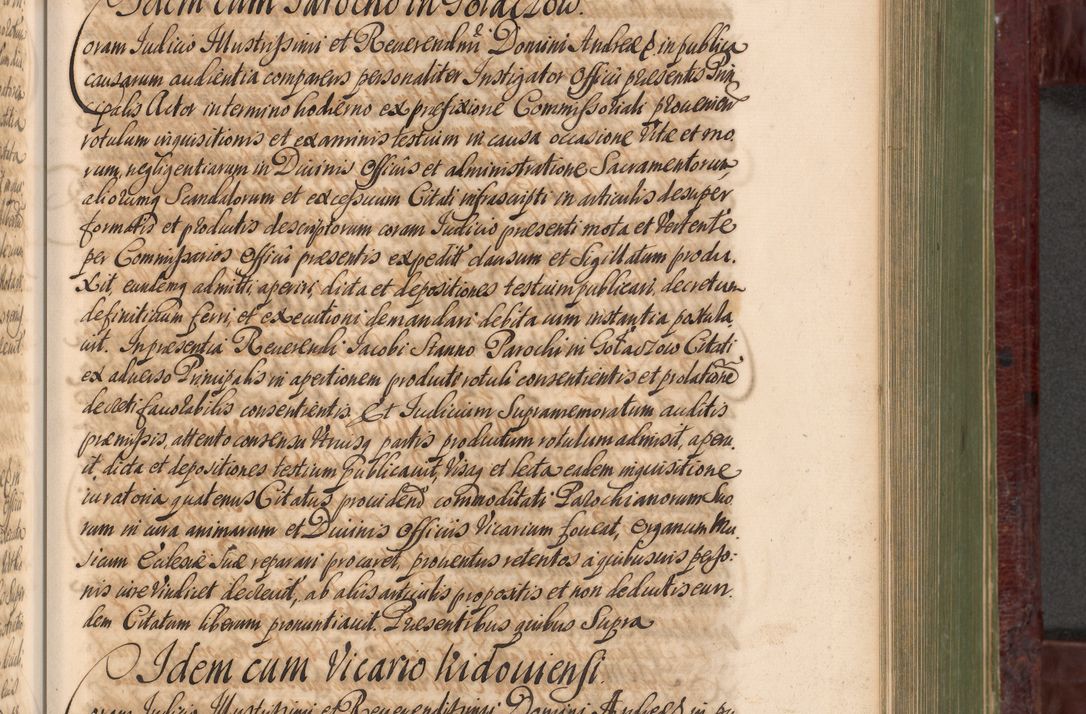 Idem cum Parocho in Gołaczow.
Coram Iudicio Illustrissimi et Reuerendmi Domini Andreæ in publica
causarum audientia comparens personaliter Instigator Officii præsentis Prin
cipalis Actor in termino hodierno ex præfixione Commissoriali proueniens
rotulum inquisitionis et examinis testium in causa occasione Vitæ et mo,
rum, negligentiarum in Diuinis Officiis et administratione Sacramentorum
aliorumq Scandalorum et excessuum Citati infrascripti in articulis desuper
formatis et productis descriptorum coram Iudicio præsenti mota et Vertente
per Commissarios Officii præsentis expedit clausum et Sigillatum produ,
xit, eundemq admitti, aperiri, dicta et depositiones testium publicari, decretum
definitiuum ferri, et executioni demandari debita cum instantia postula,
uit. In præsentia Reuerendi Iacobi Stanno Parochi in Gołaczow Citati
ex aduerso Principalis in apertionem producti rotuli consentientis et prolatione
decreti fauorabilis consentientis. Et Iudicium Supramemoratum auditis
præmissis attento consensu Vtriusq partis productum rotulum admisit, aperu
it dicta et depositiones testium publicauit, Visaq et lecta eadem inquisitione
iuratoria quatenus Citatus prouidend commoditati Parochianorum Suo
rum in cura animarum et Diuinis Officiis Vicarium foueat, Organum Mu,
sicum Ecclesiæ Suæ reparari procuret, prouentus retentos a quibusuis perso,
nis iure Vindicet decreuit, ab aliis articulis propositis et non deductis eun,
dem Citatum liberum pronuntiauit. Præsentibus quibus Supra
Idem cum Vicario Kidouiensi.
Coram Iudicio Illustrissimi et Reuerendissimi Domini Andreæ in pu